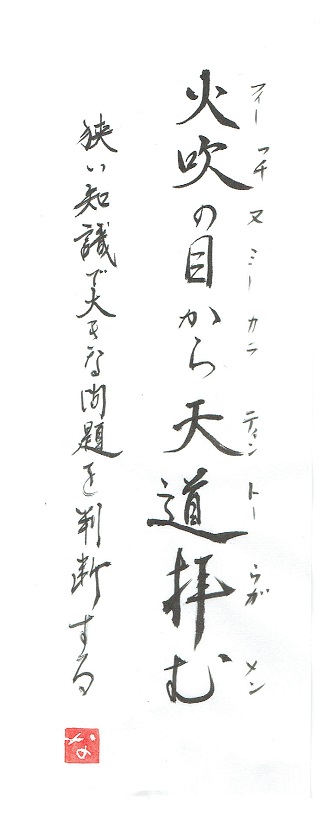 フィーフチヌミーカラティントーうがメン
火吹の目から天道拝む
狭い知識で大きな問題を判断する
な